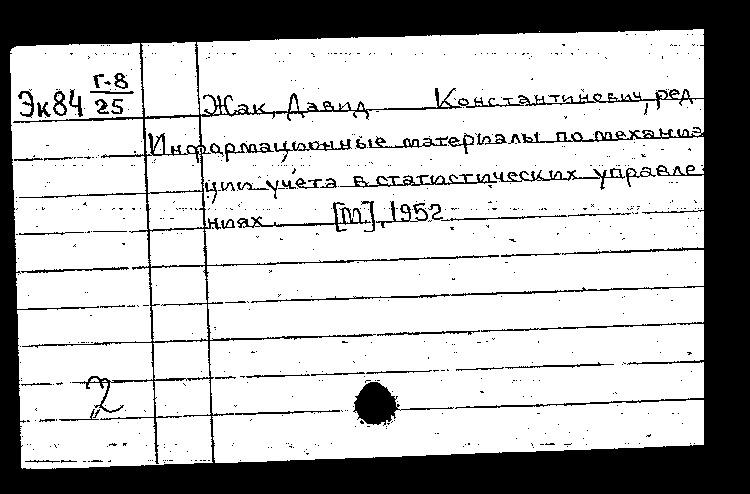 Эк84 Г-8
25
Жак, Давид Константинович, ред
Информационные материалы по механиза
ции учёта в статистических управле-
ниях. [М.], 1952
2